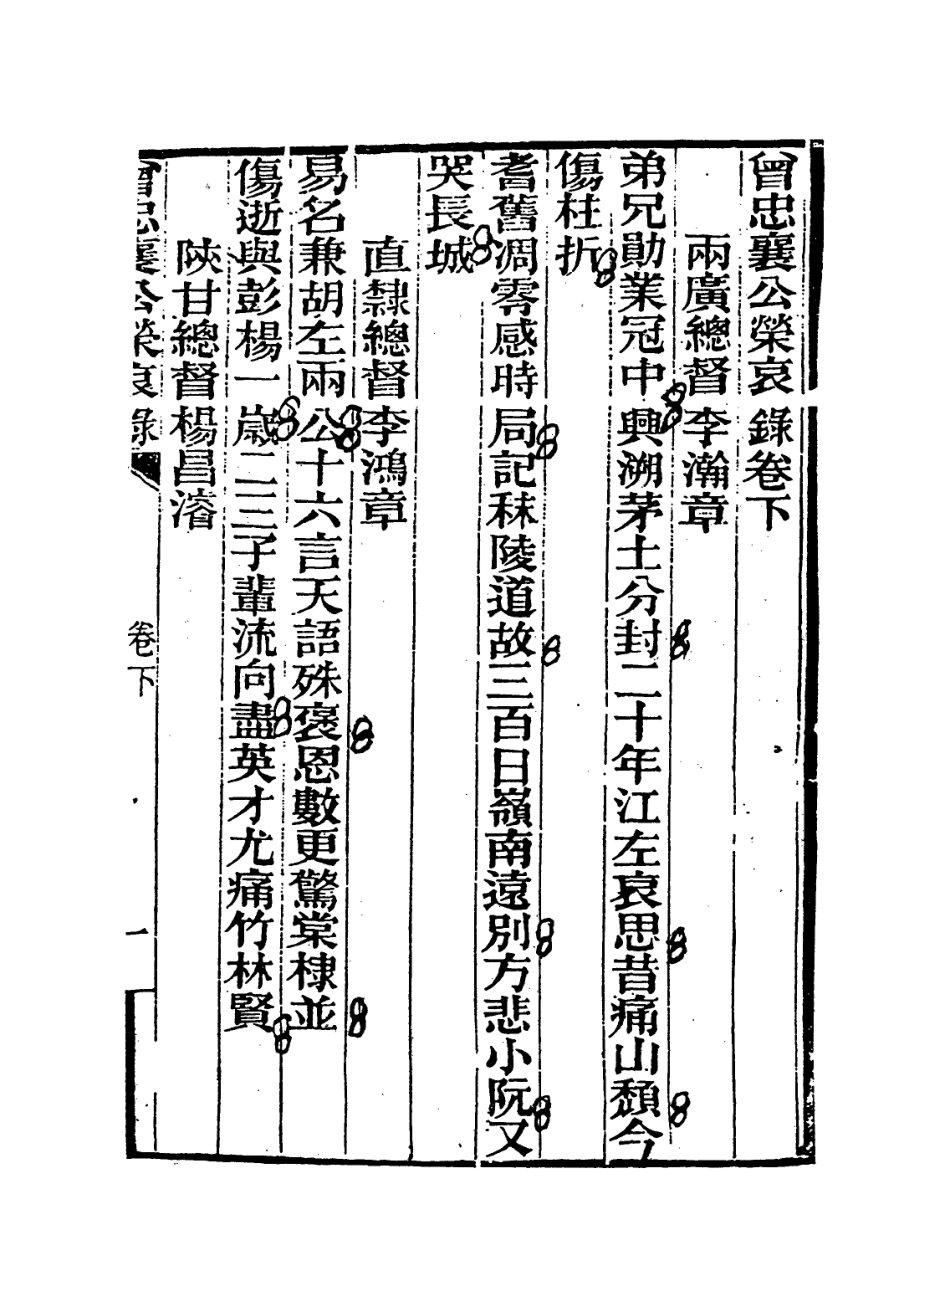 曾忠襄公榮哀錄卷下
兩廣總督李瀚章
弟兄勛業冠中興溯茅土分封二十年江左哀思昔痛山頹今
傷柱折
耆舊凋零感時局記秣陵道故三百日嶺南遠別方悲小阮又
哭長城
直隸總督李鴻章
易名兼胡左兩公十六言天語殊褒恩數更驚棠棣並
傷逝與彭楊一歲二三子輩流向盡英才尤痛竹林賢
陝甘總督楊昌濬
曾忠襄公榮哀錄
卷下
一